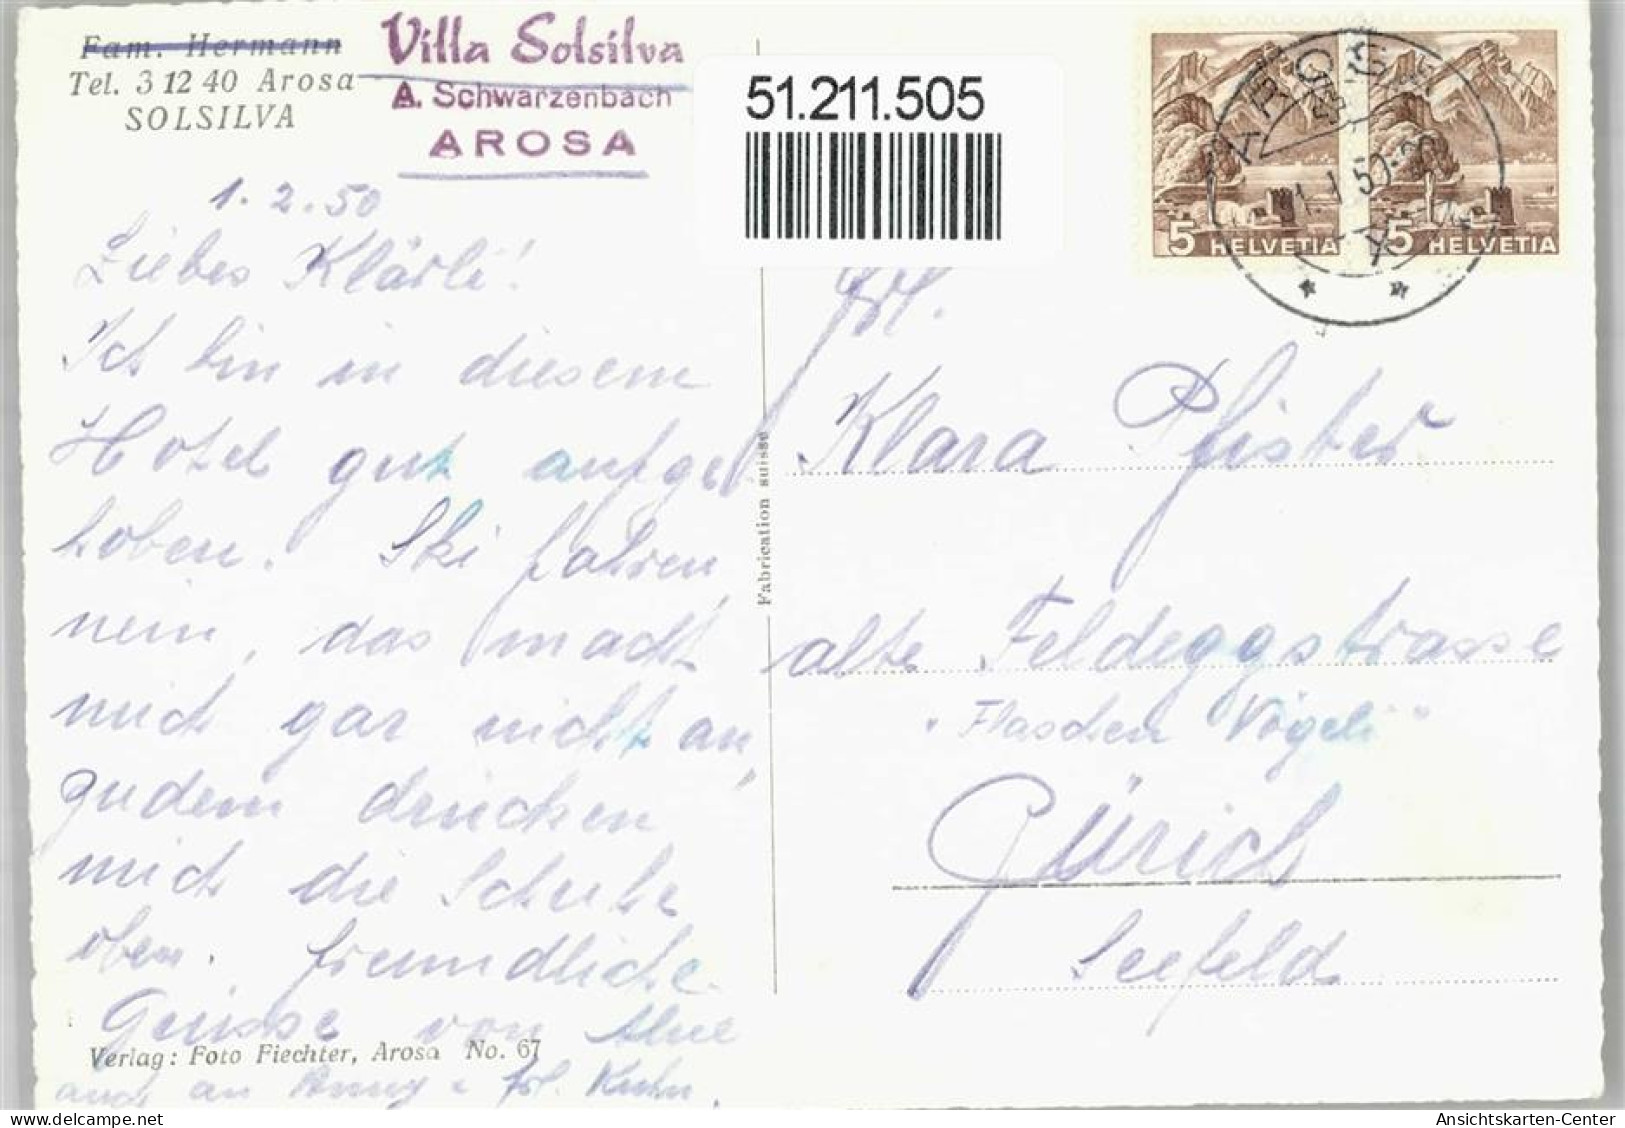 Fam. Hermann
Tel. 3 12 40 Arosa
SOLSILVA
Villa Solsilva
A. Schwarzenbach
AROSA
51.211.505
1.2.50
Liebes Klärli!
Ich bin in diesem
Hotel gut aufge
hoben. Ski fahren
nein, das macht
mich gar nicht an,
zudem drücken
mich die Schuhe
oben. freundliche
Grüsse von
auch an Anny u Frl. Kuhn.
Verlag: Foto Fiechter, Arosa No. 67
Fabrication suisse
5 HELVETIA
5 HELVETIA
AROSA
50
Frl.
Klara Pfister
alte Feldeggstrasse
"Flaschen Vögeli"
Zürich
Seefeld
Ansichtskarten-Center